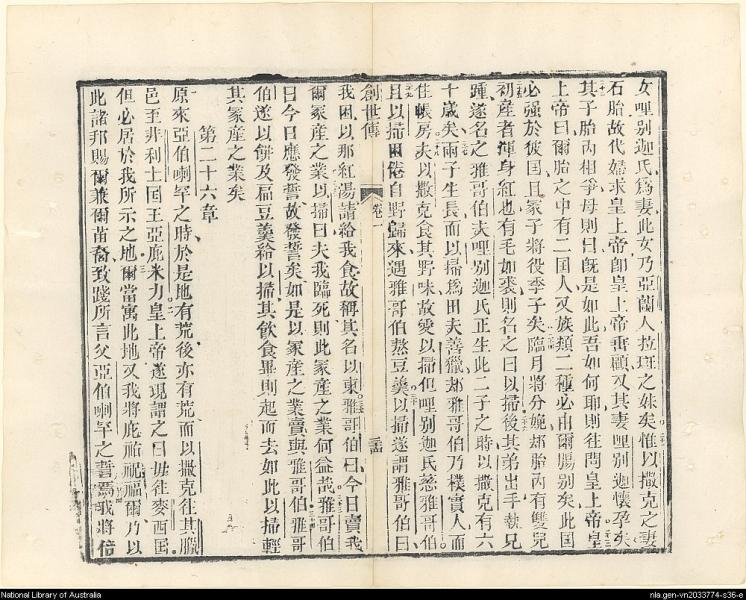 女哩别迦氏爲妻此女乃亞蘭人拉班之妹矣惟以撒克之妻
石胎故代婦求皇上帝卽皇上帝垂顧又其妻哩别迦懷孕矣
其子胎內相爭母則曰旣是如此吾如何耶則往問皇上帝皇
上帝曰爾胎之中有二国人又族類二種必由爾腸别矣此国
必强於彼国且冢子將役季子矣臨月將分娩郝胎內有雙兒
初產者渾身紅也有毛如裘則名之曰以掃後其弟出手執兄
踵遂名之雅哥伯夫哩别迦氏正生此二子之時以撒克有六
十歲矣兩子生長而以掃爲田夫善獵郝雅哥伯乃樸實人而
住帳房夫以撒克食其野味故愛以掃但哩别迦氏慈雅哥伯
且以掃困倦自野歸來遇雅哥伯熬豆羹以掃遂謂雅哥伯曰
創世傳 卷一
我困以那紅湯請給我食故稱其名以東雅哥伯曰今日賣我
爾冢產之業以掃曰夫我臨死則此冢產之業何益哉雅哥伯
曰今日應發誓故發誓矣如是以冢產之業賣與雅哥伯雅哥
伯遂以餅及扁豆羹給以掃其飲食畢則起而去如此以掃輕
其冢產之業矣
第二十六章
原來亞伯喇罕之時於是地有荒後亦有荒而以撒克往其
邑至非利士国王亞庇米力皇上帝遂現謂之曰毋往麥西国
但必居於我所示之地爾當寓此地又我將庇祐祝福爾乃以
此諸邦賜爾兼爾苗裔致踐所言父亞伯喇罕之誓焉我將倍
National Library of Australia
nla.gen-vn2033774-s36-e